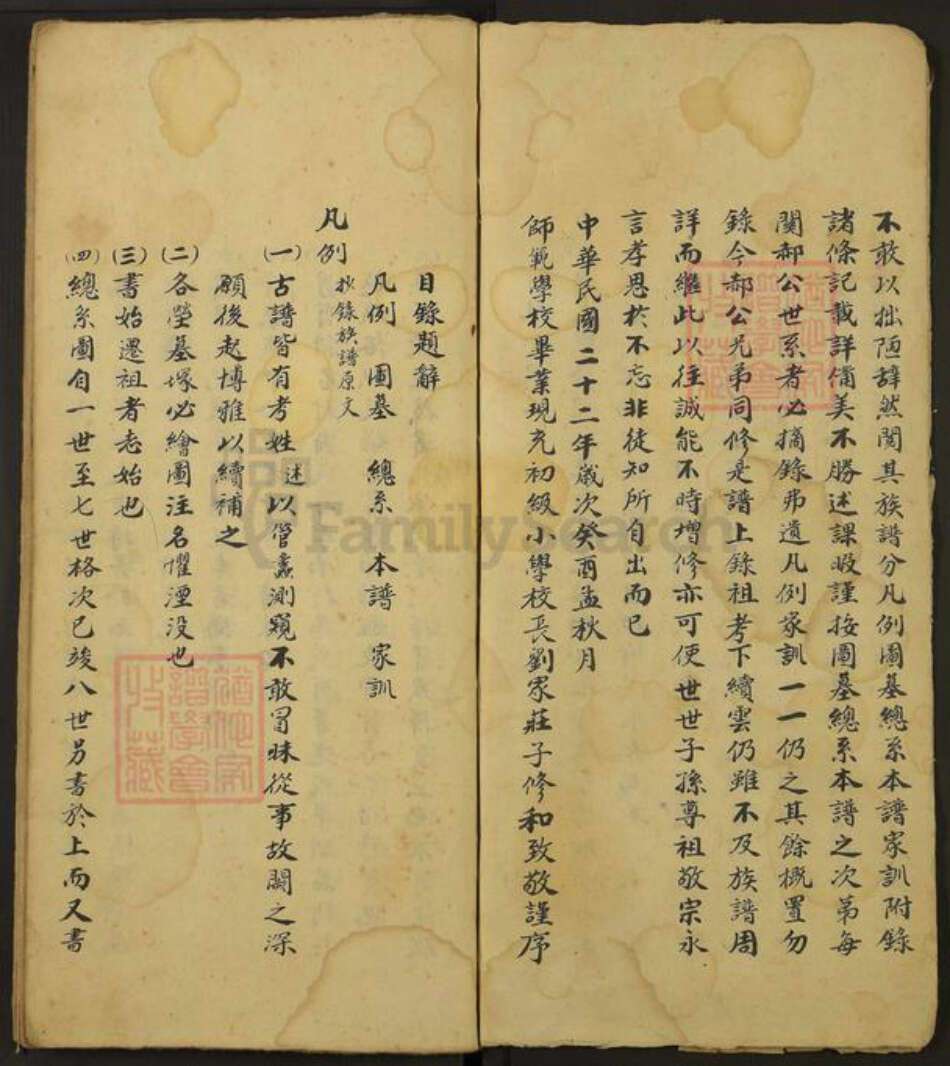 不敢以拙陋辭然閱其族譜分凡例圖墓總系本譜家訓附錄
諸條記載詳備美不勝述課暇謹按圖墓總系本譜之次第每
關郝公世系者必摘錄弗遺凡例家訓一一仍之其餘概置勿
錄今郝公兄弟同修是譜上錄祖考下續雲仍雖不及族譜周
詳而繼此以往誠能不時增修亦可使世世子孫尊祖敬宗永
言孝思於不忘非徒知所自出而已
中華民國二十二年歲次癸酉孟秋月
師範學校畢業現充初級小學校長劉家莊子修和致敬謹序
目錄題辭
凡例 圖墓 總系 本譜 家訓
凡例 抄錄族譜原文
(一)古譜皆有考姓述以管蠡測窺不敢冒昧從事故闕之深
願後起博雅以續補之
(二)各塋墓塚必繪圖注名懼湮没也
(三)書始遷祖者志始也
(四)總系圖自一世至七世格次已竣八世另書於上而又書
FamilySearch